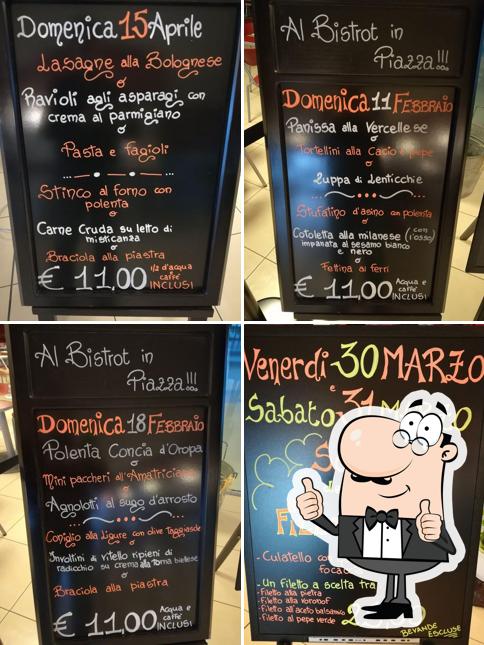 Domenica 15 Aprile
Lasagne alla Bolognese
o
Ravioli agli asparagi con
crema al parmigiano
o
Pasta e fagioli
Stinco al forno con
polenta
o
Carne Cruda su letto di
misticanza
o
Braciola alla piastra
€ 11,00 1/2 d'acqua
caffè
INCLUSI
Al Bistrot in
Piazza!!!
Domenica 11 FEBBRAIO
Panissa alla Vercellese
o
Tortellini alla Cacio e pepe
o
Zuppa di lenticchie
Stufatino d'asino con polenta
o
Cotoletta alla milanese (con
l'osso)
impanata al sesamo bianco
e nero
o
Fettina ai ferri
€ 11,00 Acqua e
caffè
INCLUSI
Al Bistrot in
Piazza!!!
Domenica 18 FEBBRAIO
Polenta Concia d'Oropa
o
Mini paccheri all'Amatriciana
o
Agnolotti al sugo d'arrosto
Coniglio alla Ligure con olive Taggiasche
o
Involtini di vitello ripieni di
radicchio su crema alla toma biellese
o
Braciola alla piastra
€ 11,00 Acqua e
caffè
INCLUSI
Venerdi 30 MARZO
e
Sabato 31
- Culatello
- Un filetto a scelta tra
- Filetto alla pietra
- Filetto alla Voronof
- Filetto all'aceto balsamico
- Filetto al pepe verde
BEVANDE
ESCLUSE